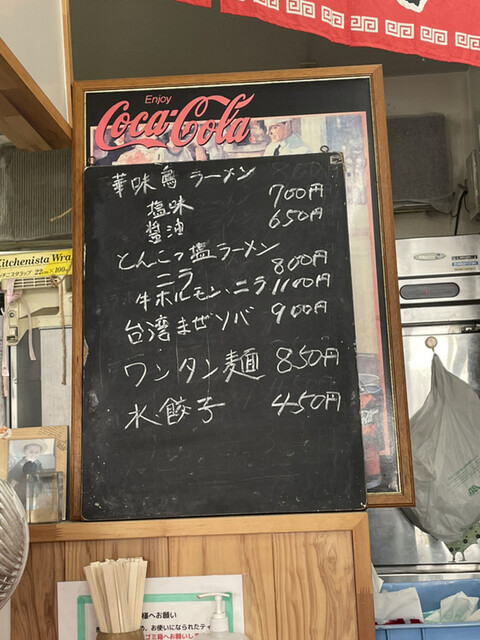 Enjoy
Coca-Cola
華味鳥 ラーメン
塩味 700円
醤油 650円
とんこつ塩ラーメン
ニラ 800円
牛ホルモン、ニラ 1100円
台湾まぜソバ 900円
ワンタン麺 850円
水餃子 450円
Kitchenista Wra
22cm×100
様へお願い
め、お使いになられたティ
ゴミ箱へお願いし